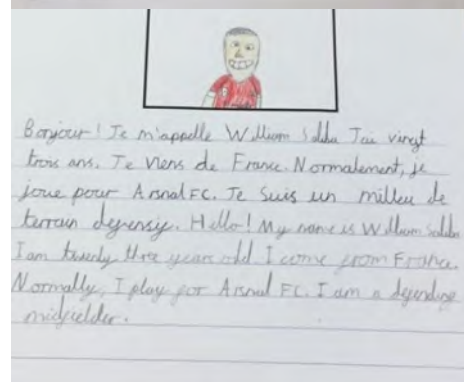 Bonjour! Je m'appelle William Saliba J'ai vingt
trois ans. Je viens de France. Normalement, je
joue pour Arsnal FC. Je suis un milieu de
terrain defensif. Hello! My name is William Saliba
I am twenty three years old I come from France.
Normally, I play for Arsnal FC. I am a defending
midfielder.